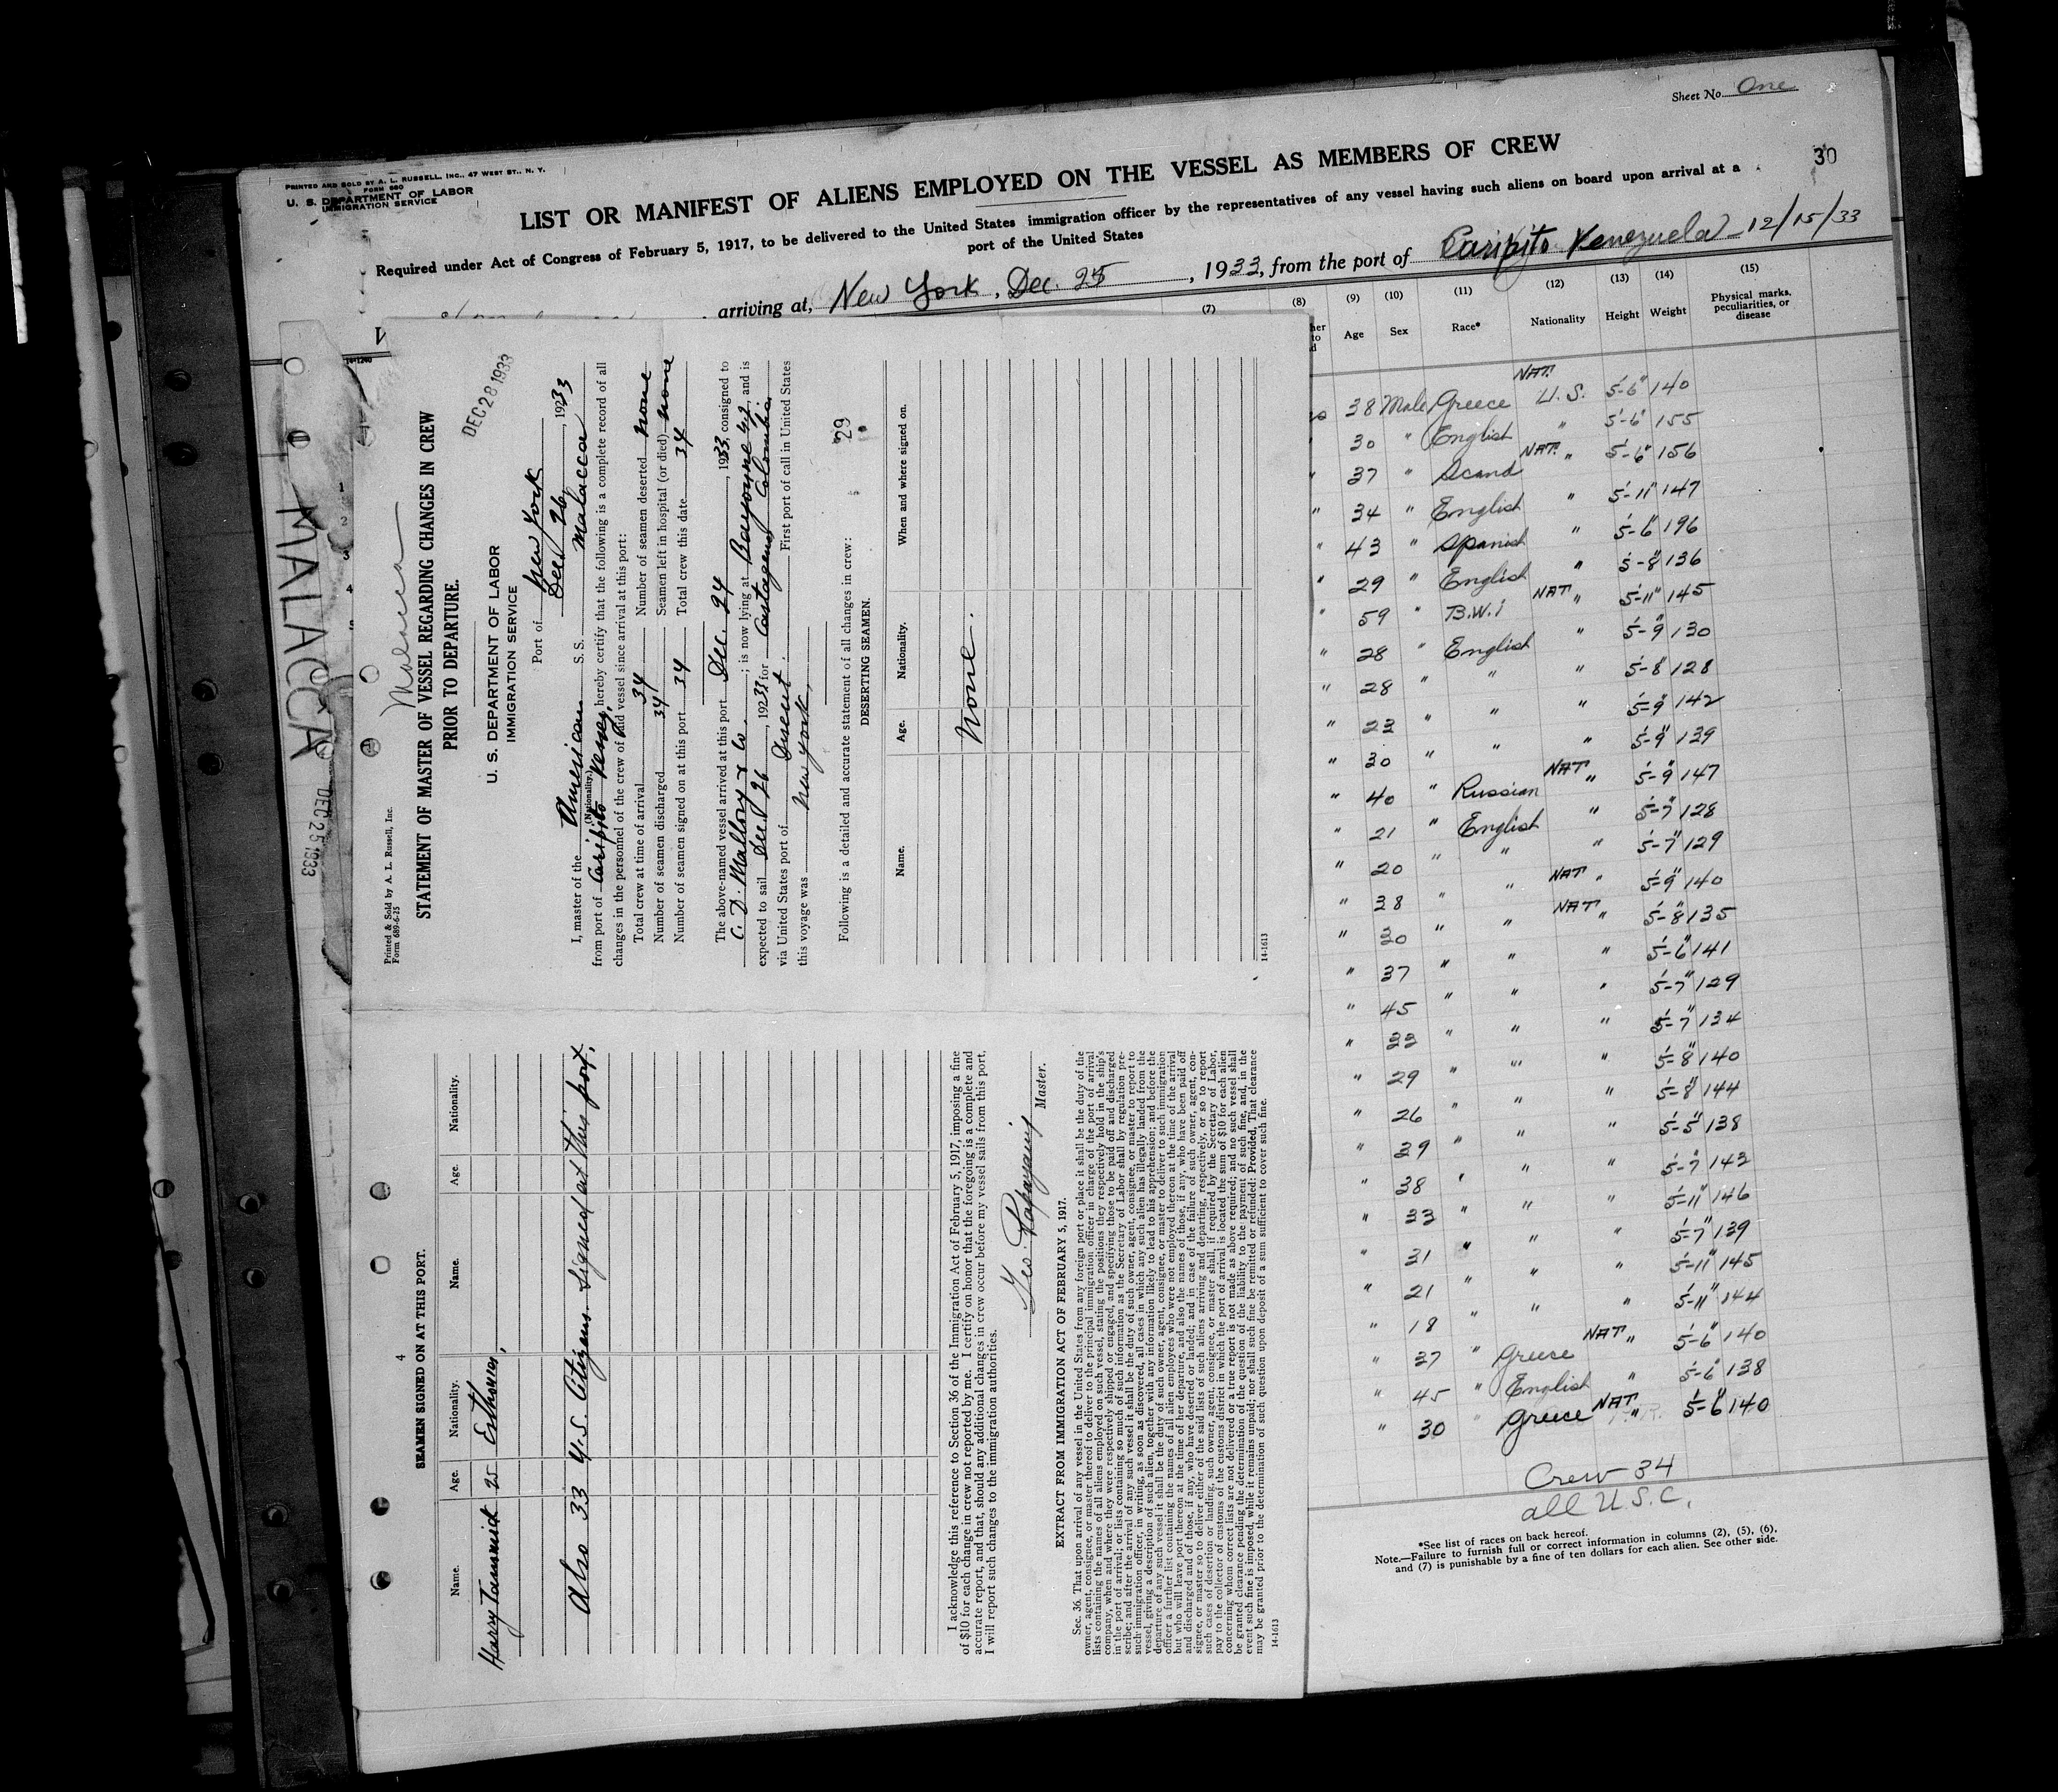 Sheet No. One
30
PRINTED AND SOLD BY A. L. RUSSELL, INC., 47 WEST ST., N. Y.
FORM 680
U. S. DEPARTMENT OF LABOR
IMMIGRATION SERVICE
LIST OR MANIFEST OF ALIENS EMPLOYED ON THE VESSEL AS MEMBERS OF CREW
Required under Act of Congress of February 5, 1917, to be delivered to the United States immigration officer by the representatives of any vessel having such aliens on board upon arrival at a
port of the United States
arriving at, New York, Dec. 25, 1933, from the port of Caripito Venezuela 12/15/33
(7) (8) (9) (10) (11) (12) (13) (14) (15)
Age Sex Race* Nationality Height Weight Physical marks, peculiarities, or disease
38 Male Greece NAT. U.S. 5'-6" 140
30 " English " 5'-6" 155
" 37 " Scand NAT. " 5'-6" 156
" 34 " English " 5'-11" 147
" 43 " Spanish " 5'-6" 196
" 29 " English " 5'-8" 136
" 59 " B.W.I NAT " 5'-11" 145
" 28 " English " 5'-9" 130
" 28 " " " 5'-8" 128
" 23 " " " 5'-9" 142
" 30 " " " 5'-9" 139
" 40 " Russian NAT " 5'-9" 147
" 21 " English " 5'-7" 128
" 20 " " " 5'-7" 129
" 38 " " NAT " 5'-9" 140
" 30 " " NAT " 5'-8" 135
" 37 " " " 5'-6" 141
" 45 " " " 5'-7" 129
" 22 " " " 5'-7" 134
" 29 " " " 5'-8" 140
" 26 " " " 5'-8" 144
" 39 " " " 5'-5" 138
" 38 " " " 5'-7" 143
" 33 " " " 5'-11" 146
" 31 " " " 5'-7" 139
" 21 " " " 5'-11" 145
" 18 " " " 5'-11" 144
" 37 " Greece NAT " 5'-6" 140
" 45 " English " 5'-6" 138
" 30 " Greece NAT " 5'-6" 140
Crew 34
all U.S.C.
*See list of races on back hereof.
Note.—Failure to furnish full or correct information in columns (2), (5), (6),
and (7) is punishable by a fine of ten dollars for each alien. See other side.
MALACCA DEC 25 1933
14-1240
1
2
3
4
5
Malacca
Printed & Sold by A. L. Russell, Inc.
Form 689-6-25
STATEMENT OF MASTER OF VESSEL REGARDING CHANGES IN CREW
PRIOR TO DEPARTURE.
DEC 28 1933
U. S. DEPARTMENT OF LABOR
IMMIGRATION SERVICE
Port of New York
Dec. 26, 1933
I, master of the American S. S. Malacca
(Nationality.)
from port of Caripito Venez, hereby certify that the following is a complete record of all
changes in the personnel of the crew of said vessel since arrival at this port:
Total crew at time of arrival 34 Number of seamen deserted none
Number of seamen discharged 34 Seamen left in hospital (or died) none
Number of seamen signed on at this port 34 Total crew this date 34
The above-named vessel arrived at this port Dec. 24, 1933, consigned to
C. D. Mallory & Co.; is now lying at Bayonne NJ, and is
expected to sail Dec. 26, 1933 for Cartagena Colombia
via United States port of Direct. First port of call in United States
this voyage was New York,
29
Following is a detailed and accurate statement of all changes in crew:
DESERTING SEAMEN.
Name. Age. Nationality. When and where signed on.
None.
14-1613
4
SEAMEN SIGNED ON AT THIS PORT.
Name. Age. Nationality. Name. Age. Nationality.
Harry Tammick 25 Esthonia,
Also 33 U.S. Citizens signed at this port.
I acknowledge this reference to Section 36 of the Immigration Act of February 5, 1917, imposing a fine
of $10 for each change in crew not reported by me. I certify on honor that the foregoing is a complete and
accurate report, and that, should any additional changes in crew occur before my vessel sails from this port,
I will report such changes to the immigration authorities.
Geo. Papayaniy
Master.
EXTRACT FROM IMMIGRATION ACT OF FEBRUARY 5, 1917.
Sec. 36. That upon arrival of any vessel in the United States from any foreign port or place it shall be the duty of the
owner, agent, consignee, or master thereof to deliver to the principal immigration officer in charge of the port of arrival
lists containing the names of all aliens employed on such vessel, stating the positions they respectively hold in the ship's
company, when and where they were respectively shipped or engaged, and specifying those to be paid off and discharged
in the port of arrival; or lists containing so much of such information as the Secretary of Labor shall by regulation pre-
scribe; and after the arrival of any such vessel it shall be the duty of such owner, agent, consignee, or master to report to
such immigration officer, in writing, as soon as discovered, all cases in which any such alien has illegally landed from the
vessel, giving a description of such alien, together with any information likely to lead to his apprehension; and before the
departure of any such vessel it shall be the duty of such owner, agent, consignee, or master to deliver to such immigration
officer a further list containing the names of all alien employees who were not employed thereon at the time of the arrival
but who will leave port thereon at the time of her departure, and also the names of those, if any, who have been paid off
and discharged and of those, if any, who have deserted or landed; and in case of the failure of such owner, agent, con-
signee, or master so to deliver either of the said lists of such aliens arriving and departing, respectively, or so to report
such cases of desertion or landing, such owner, agent, consignee, or master shall, if required by the Secretary of Labor,
pay to the collector of customs of the customs district in which the port of arrival is located the sum of $10 for each alien
concerning whom correct lists are not delivered or a true report is not made as above required; and no such vessel shall
be granted clearance pending the determination of the question of the liability to the payment of such fine, and, in the
event such fine is imposed, while it remains unpaid; nor shall such fine be remitted or refunded: Provided, That clearance
may be granted prior to the determination of such question upon deposit of a sum sufficient to cover such fine.
14-1613